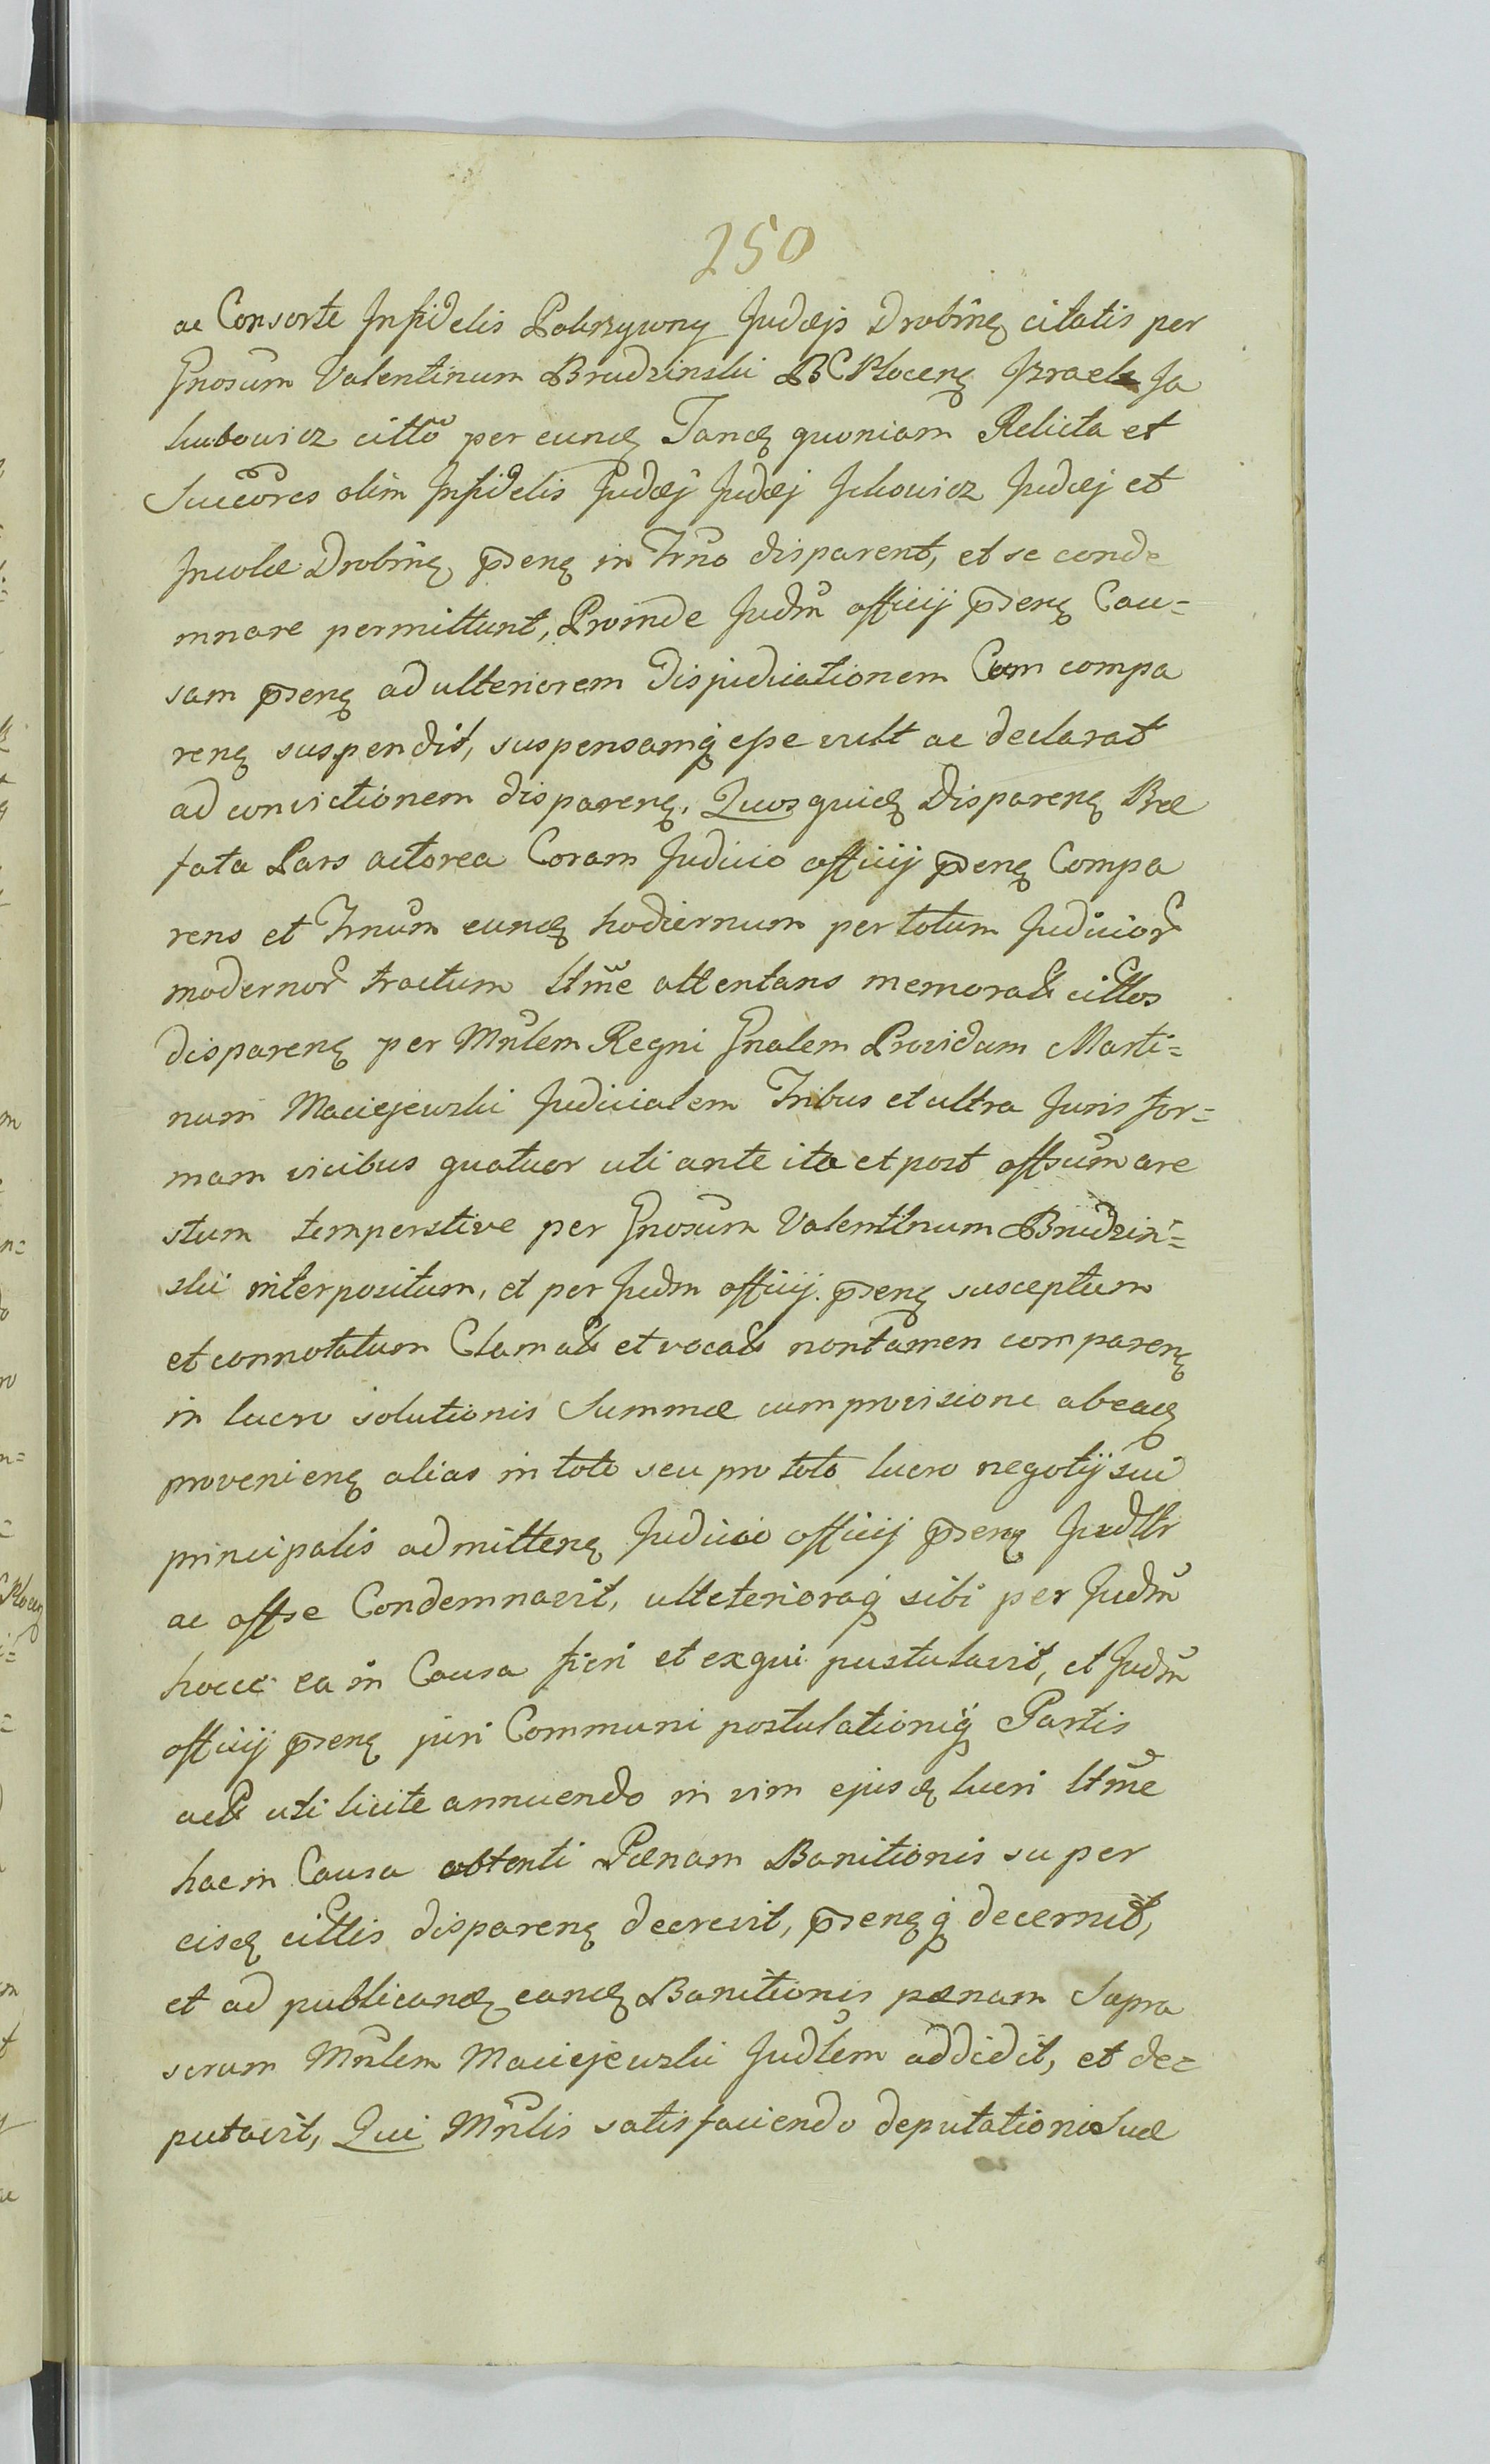 250
ac Consorte Infidelis Pokrzywny Judæjs Drobinę citatis per
Gnosum Valentinum Brudzinski BC Plocenę Izraele Ja
kubowicz citto per eundę Tandę quoniam Relicta et
Succores olim Infidelis Judæj Judæj Ickowicz Judæj et
Incolæ Drobinę p̄senę in Trno disparent, et se conde
mnare permittunt, Proinde Judm officij p̄senę Cau=
sam p̄senę ad ulteriorem disjudicationem Cum compa
renę suspendit, suspensamq esse vult ac declarat
ad convictionem disparenę. Quos quidę Disparenę Præ
fata Pars actorea Coram Judicio officij p̄senę Compa
rens et Trnum eundę hodiernum per totum Judicior
modernor tractum ltme attentans memorats cittos
disparenę per Mnlem Regni Gnalem Providum Marti=
num Maciejewski Judicialem Tribus et ultra Juris for=
mam vicibus quatuor uti ante ita et post offsum are
stum temperstive per Gnosum Valentinum Brudzin=
ski interpositum, et per Judm officij p̄senę susceptum
et connotatum Clamats et vocats non tamen comparenę
in lucro solutionis Summæ cum provisione ab eadę
provenienę alias in toto seu pro toto lucro negotij sui
principalis admittenę Judicio officij p̄senę Judltr
ac offse Condemnavit, ulteterioraq sibi per Judm
hocce ea in Causa fieri et exqui pustulavit, et Judm
officij p̄senę juri Communi postulationiq Partis
acts uti licite annuendo in vim ejusdę lucri ltme
hac in Causa obtenti Pænam Banitionis super
eisdę cittis disparenę decrevit, p̄senęq decernit,
et ad publicandę eandę Banitionis pænam Supra
scrum Mnlem Maciejewski Judlem addidit, et de=
putavit, Qui Mnlis satisfaciendo deputationi Suæ